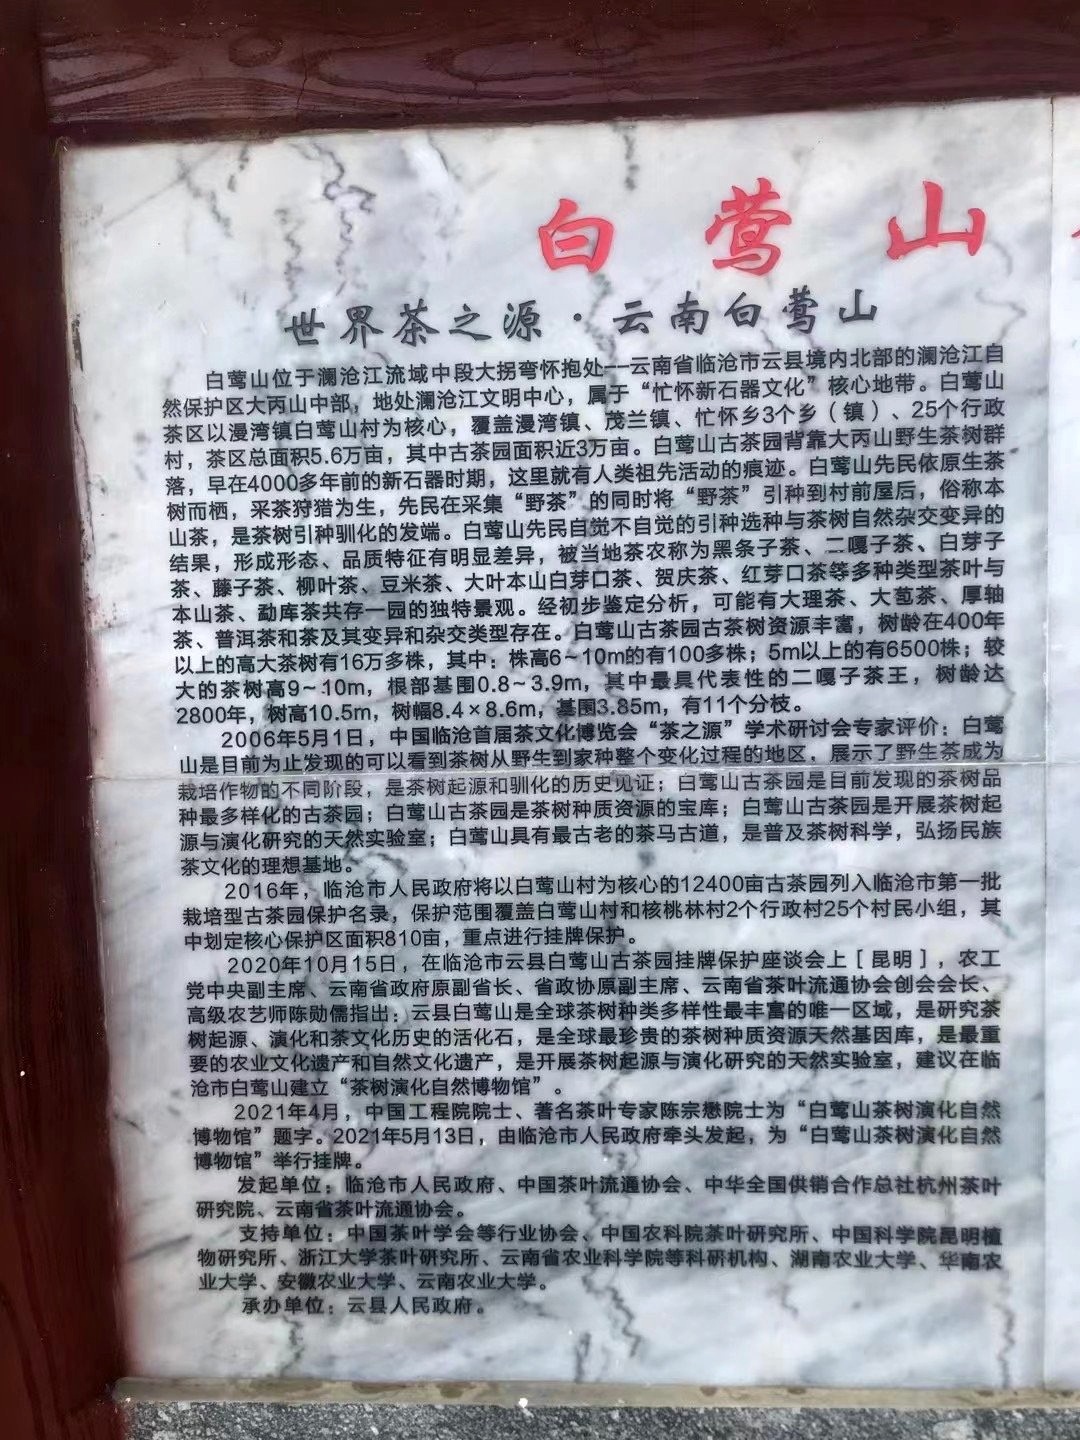 白莺山
世界茶之源·云南白莺山
白莺山位于澜沧江流域中段大拐弯怀抱处--云南省临沧市云县境内北部的澜沧江自
然保护区大丙山中部，地处澜沧江文明中心，属于“忙怀新石器文化”核心地带。白莺山
茶区以漫湾镇白莺山村为核心，覆盖漫湾镇、茂兰镇、忙怀乡3个乡（镇）、25个行政
村，茶区总面积5.6万亩，其中古茶园面积近3万亩。白莺山古茶园背靠大丙山野生茶树群
落，早在4000多年前的新石器时期，这里就有人类祖先活动的痕迹。白莺山先民依原生茶
树而栖，采茶狩猎为生，先民在采集“野茶”的同时将“野茶”引种到村前屋后，俗称本
山茶，是茶树引种驯化的发端。白莺山先民自觉不自觉的引种选种与茶树自然杂交变异的
结果，形成形态、品质特征有明显差异，被当地茶农称为黑条子茶、二嘎子茶、白芽子
茶、藤子茶、柳叶茶、豆米茶、大叶本山白芽口茶、贺庆茶、红芽口茶等多种类型茶叶与
本山茶、勐库茶共存一园的独特景观。经初步鉴定分析，可能有大理茶、大苞茶、厚轴
茶、普洱茶和茶及其变异和杂交类型存在。白莺山古茶园古茶树资源丰富，树龄在400年
以上的高大茶树有16万多株，其中：株高6～10m的有100多株；5m以上的有6500株；较
大的茶树高9～10m，根部基围0.8～3.9m，其中最具代表性的二嘎子茶王，树龄达
2800年，树高10.5m，树幅8.4×8.6m，基围3.85m，有11个分枝。
2006年5月1日，中国临沧首届茶文化博览会“茶之源”学术研讨会专家评价：白莺
山是目前为止发现的可以看到茶树从野生到家种整个变化过程的地区，展示了野生茶成为
栽培作物的不同阶段，是茶树起源和驯化的历史见证；白莺山古茶园是目前发现的茶树品
种最多样化的古茶园；白莺山古茶园是茶树种质资源的宝库；白莺山古茶园是开展茶树起
源与演化研究的天然实验室；白莺山具有最古老的茶马古道，是普及茶树科学，弘扬民族
茶文化的理想基地。
2016年，临沧市人民政府将以白莺山村为核心的12400亩古茶园列入临沧市第一批
栽培型古茶园保护名录，保护范围覆盖白莺山村和核桃林村2个行政村25个村民小组，其
中划定核心保护区面积810亩，重点进行挂牌保护。
2020年10月15日，在临沧市云县白莺山古茶园挂牌保护座谈会上［昆明］，农工
党中央副主席、云南省政府原副省长、省政协原副主席、云南省茶叶流通协会创会会长、
高级农艺师陈勋儒指出：云县白莺山是全球茶树种类多样性最丰富的唯一区域，是研究茶
树起源、演化和茶文化历史的活化石，是全球最珍贵的茶树种质资源天然基因库，是最重
要的农业文化遗产和自然文化遗产，是开展茶树起源与演化研究的天然实验室，建议在临
沧市白莺山建立“茶树演化自然博物馆”。
2021年4月，中国工程院院士、著名茶叶专家陈宗懋院士为“白莺山茶树演化自然
博物馆”题字。2021年5月13日，由临沧市人民政府牵头发起，为“白莺山茶树演化自然
博物馆”举行挂牌。
发起单位：临沧市人民政府、中国茶叶流通协会、中华全国供销合作总社杭州茶叶
研究院、云南省茶叶流通协会。
支持单位：中国茶叶学会等行业协会、中国农科院茶叶研究所、中国科学院昆明植
物研究所、浙江大学茶叶研究所、云南省农业科学院等科研机构、湖南农业大学、华南农
业大学、安徽农业大学、云南农业大学。
承办单位：云县人民政府。